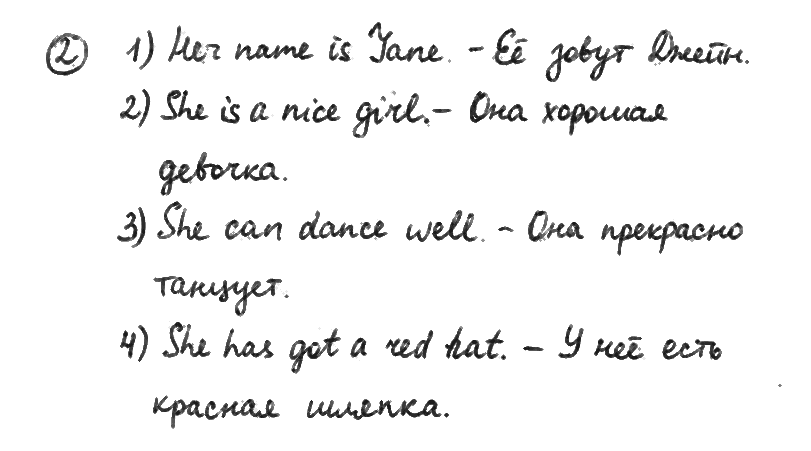 ② 1) Her name is Jane. - Её зовут Джейн.
2) She is a nice girl. - Она хорошая
девочка.
3) She can dance well. - Она прекрасно
танцует.
4) She has got a red hat. - У неё есть
красная шляпка.